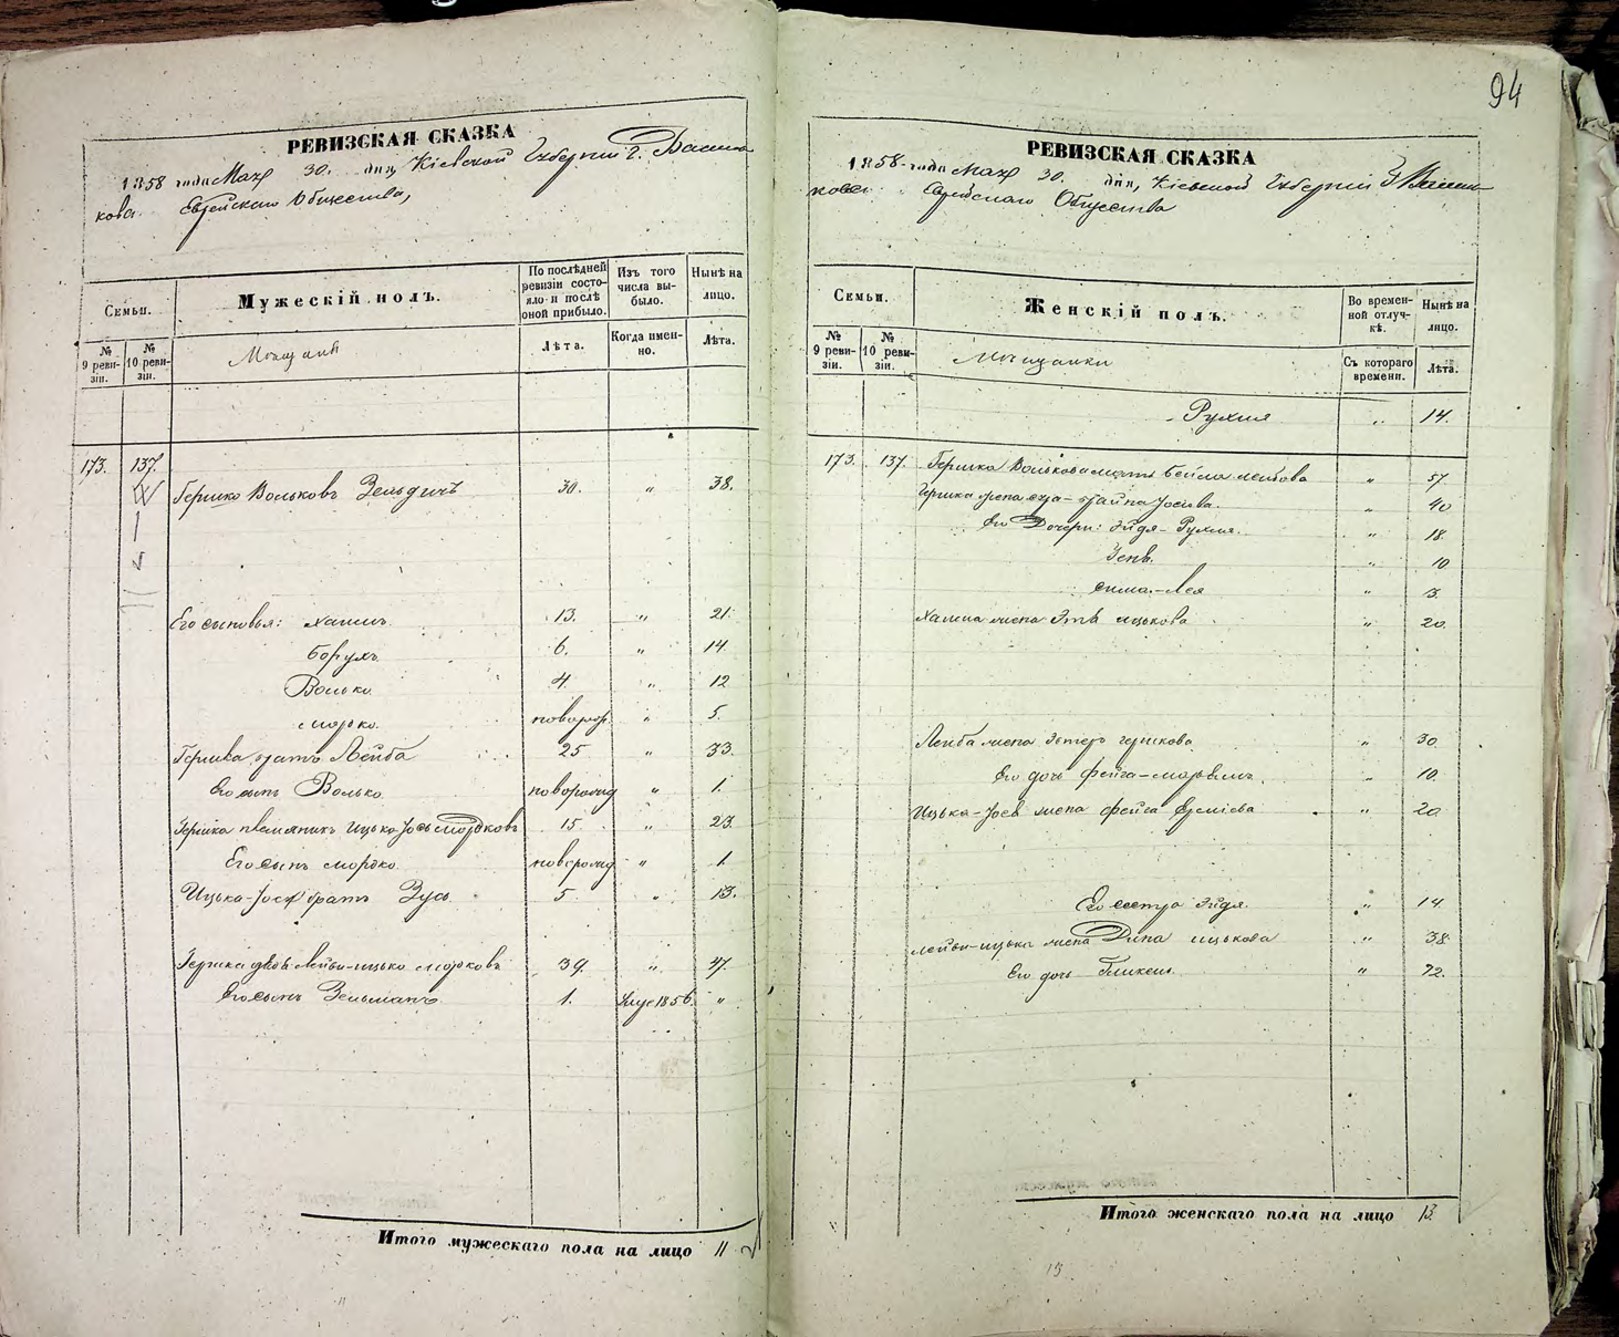 94
РЕВИЗСКАЯ СКАЗКА
1858 года Мая 30. дня, Кіевской Губерніи г. Василькова Еврейскаго Общества,
Семьи.
Мужескій полъ.
По послѣдней ревизіи состояло и послѣ оной прибыло.
Изъ того числа выбыло.
Нынѣ на лицо.
№ 9 ревизіи.
№ 10 ревизіи.
Мещане
Лѣта.
Когда именно.
Лѣта.
173. 137.
Гершко Вольковъ Зельдичъ 30. " 38.
Его сыновья: Хаимъ 13. " 21.
Борухъ 6. " 14
Волько 4. " 12
Мордко. новорож. " 5.
Гершка братъ Лейба 25 " 33.
Его сынъ Волько новорожд " 1.
Гершка племянникъ Ицько-Йось Мордковъ 15. " 23.
Его сынъ Мордко новорожд " 1.
Ицька-Йося братъ Зусь 5. " 13.
Гершка дядя Лейби-Ицько Мордковъ 39. " 47.
Его сынъ Зельманъ 1. 1856. "
Итого мужескаго пола на лицо 11
РЕВИЗСКАЯ СКАЗКА
1858 года Мая 30. дня, Кіевской Губерніи г. Василькова Еврейскаго Общества
Семьи.
Женскій полъ.
Во временной отлучкѣ.
Нынѣ на лицо.
№ 9 ревизіи.
№ 10 ревизіи.
Мещанки
Съ котораго времени.
Лѣта.
Рухля " 14.
173. 137. Гершка Волькова мать Бейла Лейбова " 57.
Гершка жена его Йосіова. " 40
Его Дочери: Эйдя-Рухля. " 18.
Зенѣ. " 10
Сима-Лея " 3.
Хаима жена Этѣ Ицькова " 20.
Лейба жена Эстеръ Гершкова " 30.
Его дочь Фейга-Марьямъ. " 10.
Ицька-Йося жена Фейга Ереміева " 20.
Его сестра Эйдя. " 14.
Лейби-Ицька жена Дина Ицькова " 38.
Его дочь " 12.
Итого женскаго пола на лицо 13.
13
11